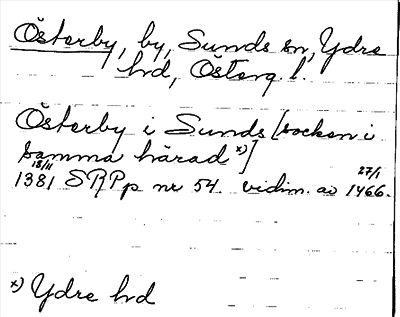 Österby, by, Sunds sn, Ydre
hd, Österg. l.
Österby i Sunds [socken i
samma härad x)]
18/11 1381 SRPp nr 54 vidim. av 27/1 1466.
x) Ydre hd